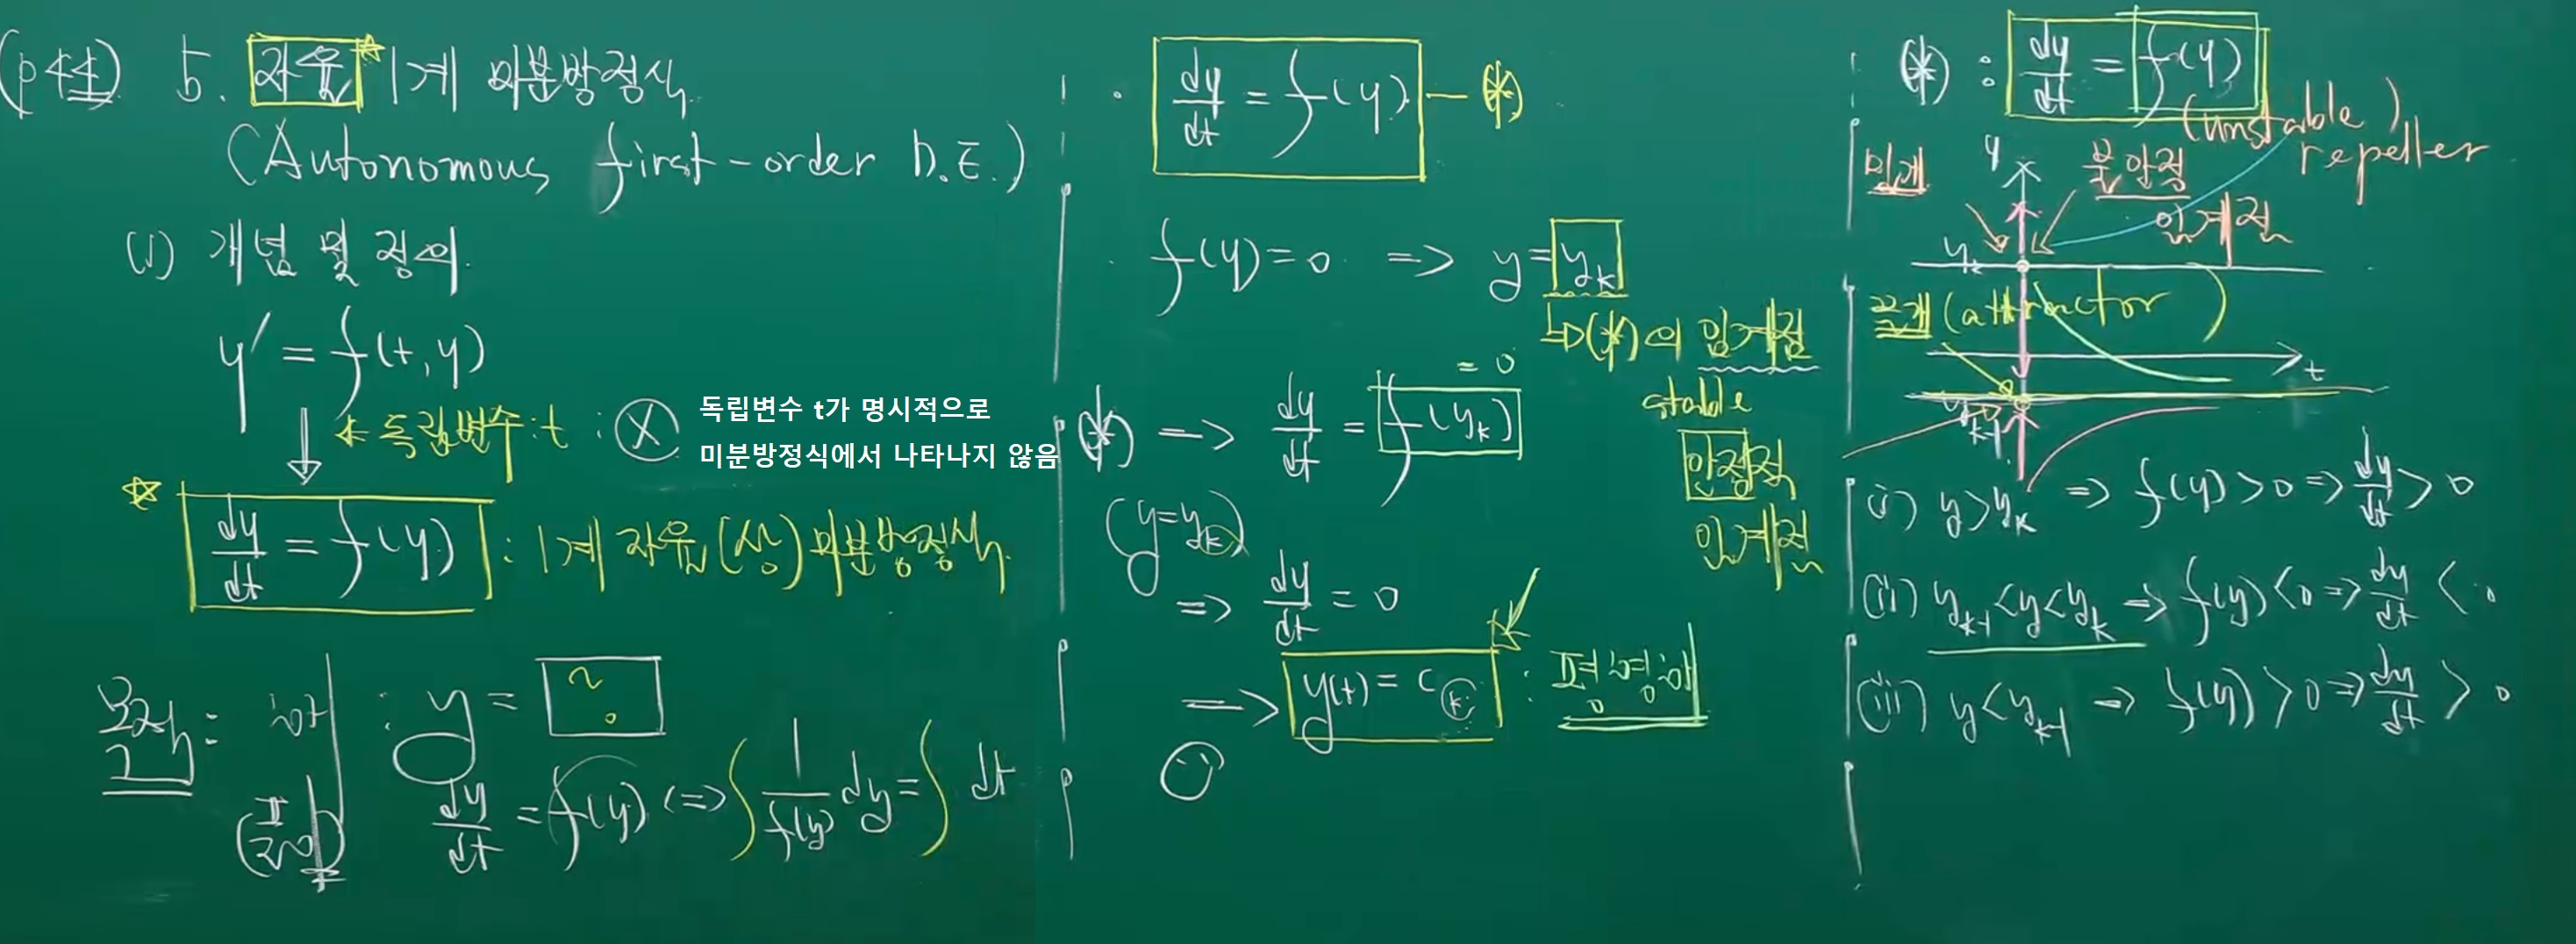 (p44) 5. 자율 1계 미분방정식
(Autonomous first-order D.E.)
(1) 개념 및 정의
y' = f(t, y)
독립변수 : t : X
독립변수 t가 명시적으로
미분방정식에서 나타나지 않음
dy/dt = f(y) : 1계 자율(상)미분방정식
목적 : 해 : y = ?
dy/dt = f(y) <=> ∫ 1/f(y) dy = ∫ dt
dy/dt = f(y) — (*)
f(y) = 0 => y = yk
(*)의 임계점
= 0
(*) => dy/dt = f(yk)
(y=yk)
stable
안정적
임계점
=> dy/dt = 0
=> y(t) = ck : 평형해
(*) : dy/dt = f(y)
(unstable)
repeller
밀개
y
불안정
임계점
yk
끌개 (attractor)
t
yk-1
(i) y > yk => f(y) > 0 => dy/dt > 0
(ii) yk-1 < y < yk => f(y) < 0 => dy/dt < 0
(iii) y < yk-1 => f(y) > 0 => dy/dt > 0